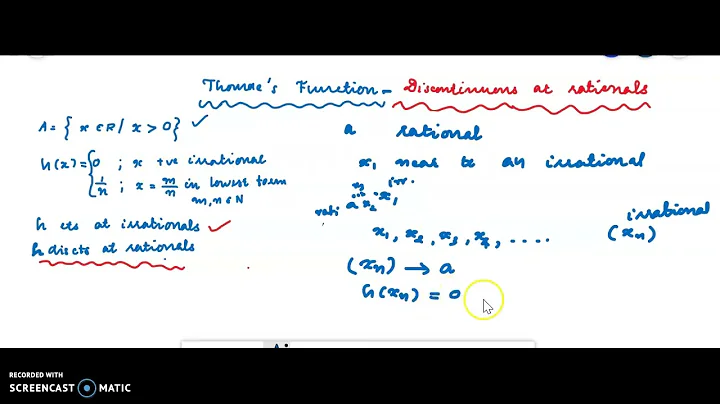 Thomae's Function - Discontinuous at rationals
A = { x ∈ R / x > 0 } ✓
h(x) = { 0 ; x +ve irrational
1/n ; x = m/n in lowest term
m, n ∈ N
h cts at irrationals ✓
h discts at rationals
a rational
x, near to an irrational
x3 irr.
rati a x2 x1
x1, x2, x3, x4, ....
irrational
(xn)
(xn) → a
h(xn) = 0
RECORDED WITH
SCREENCAST MATIC